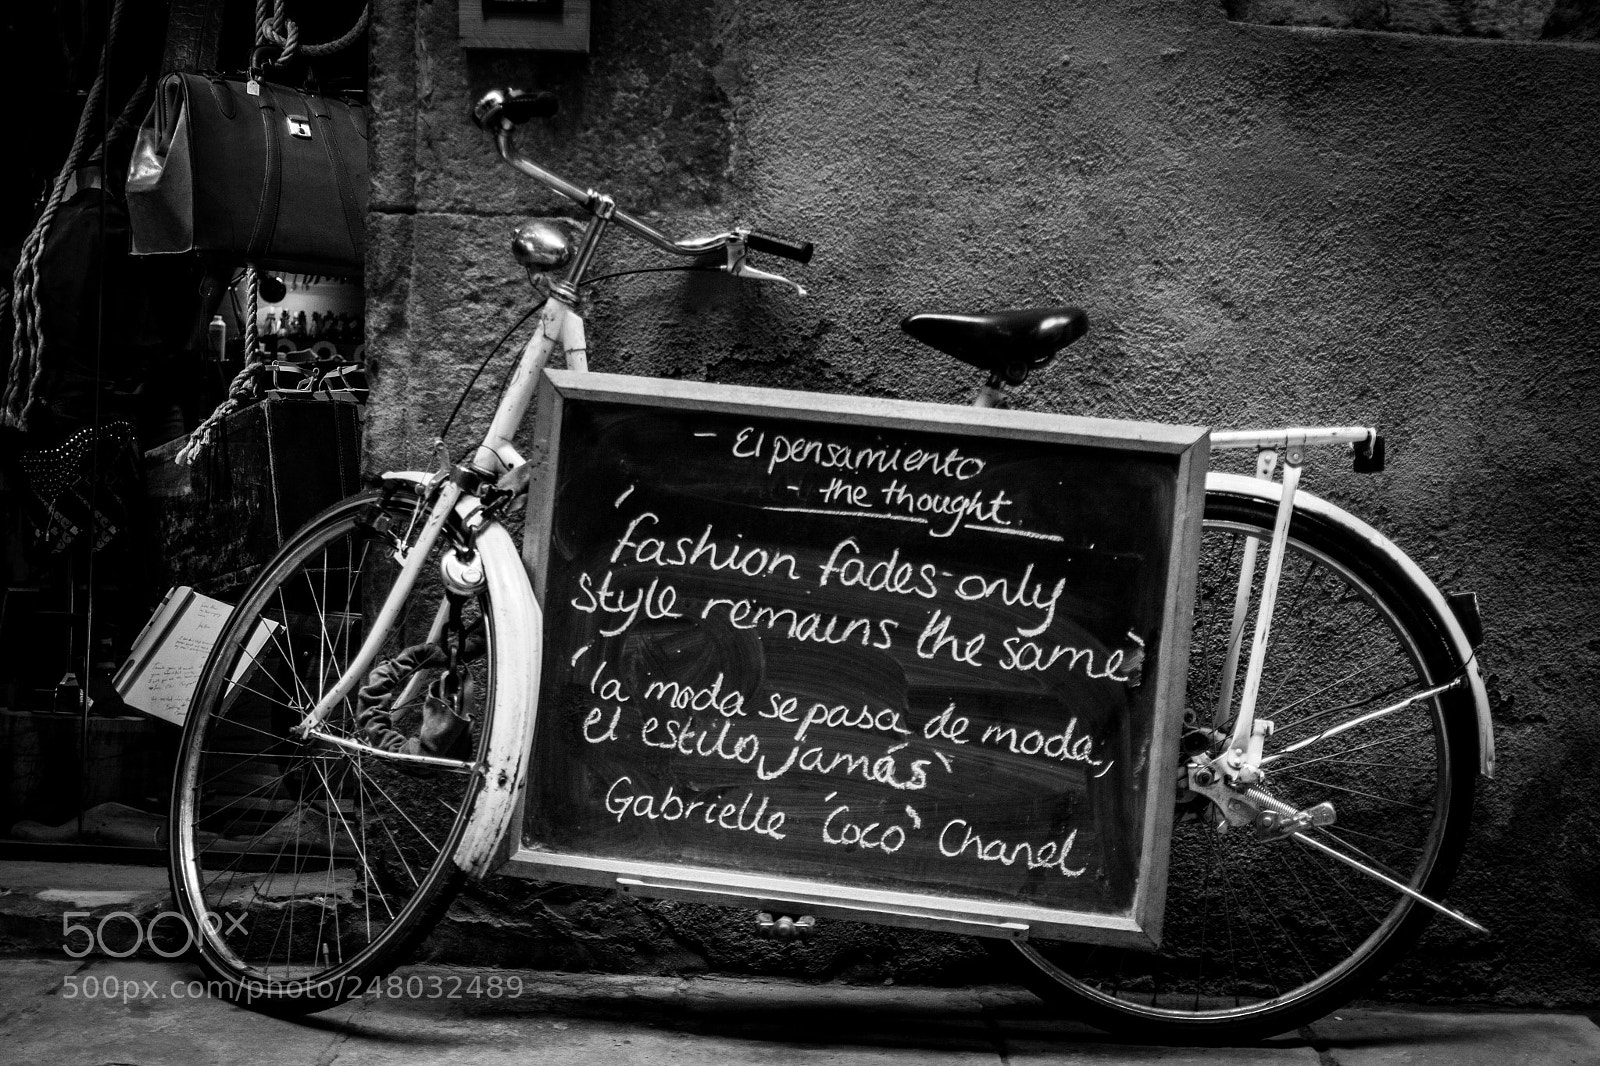 - El pensamiento
- the thought.
'fashion fades-only
style remains the same'
'la moda se pasa de moda,
el estilo jamás'
Gabrielle 'Coco' Chanel
500px
500px.com/photo/248032489